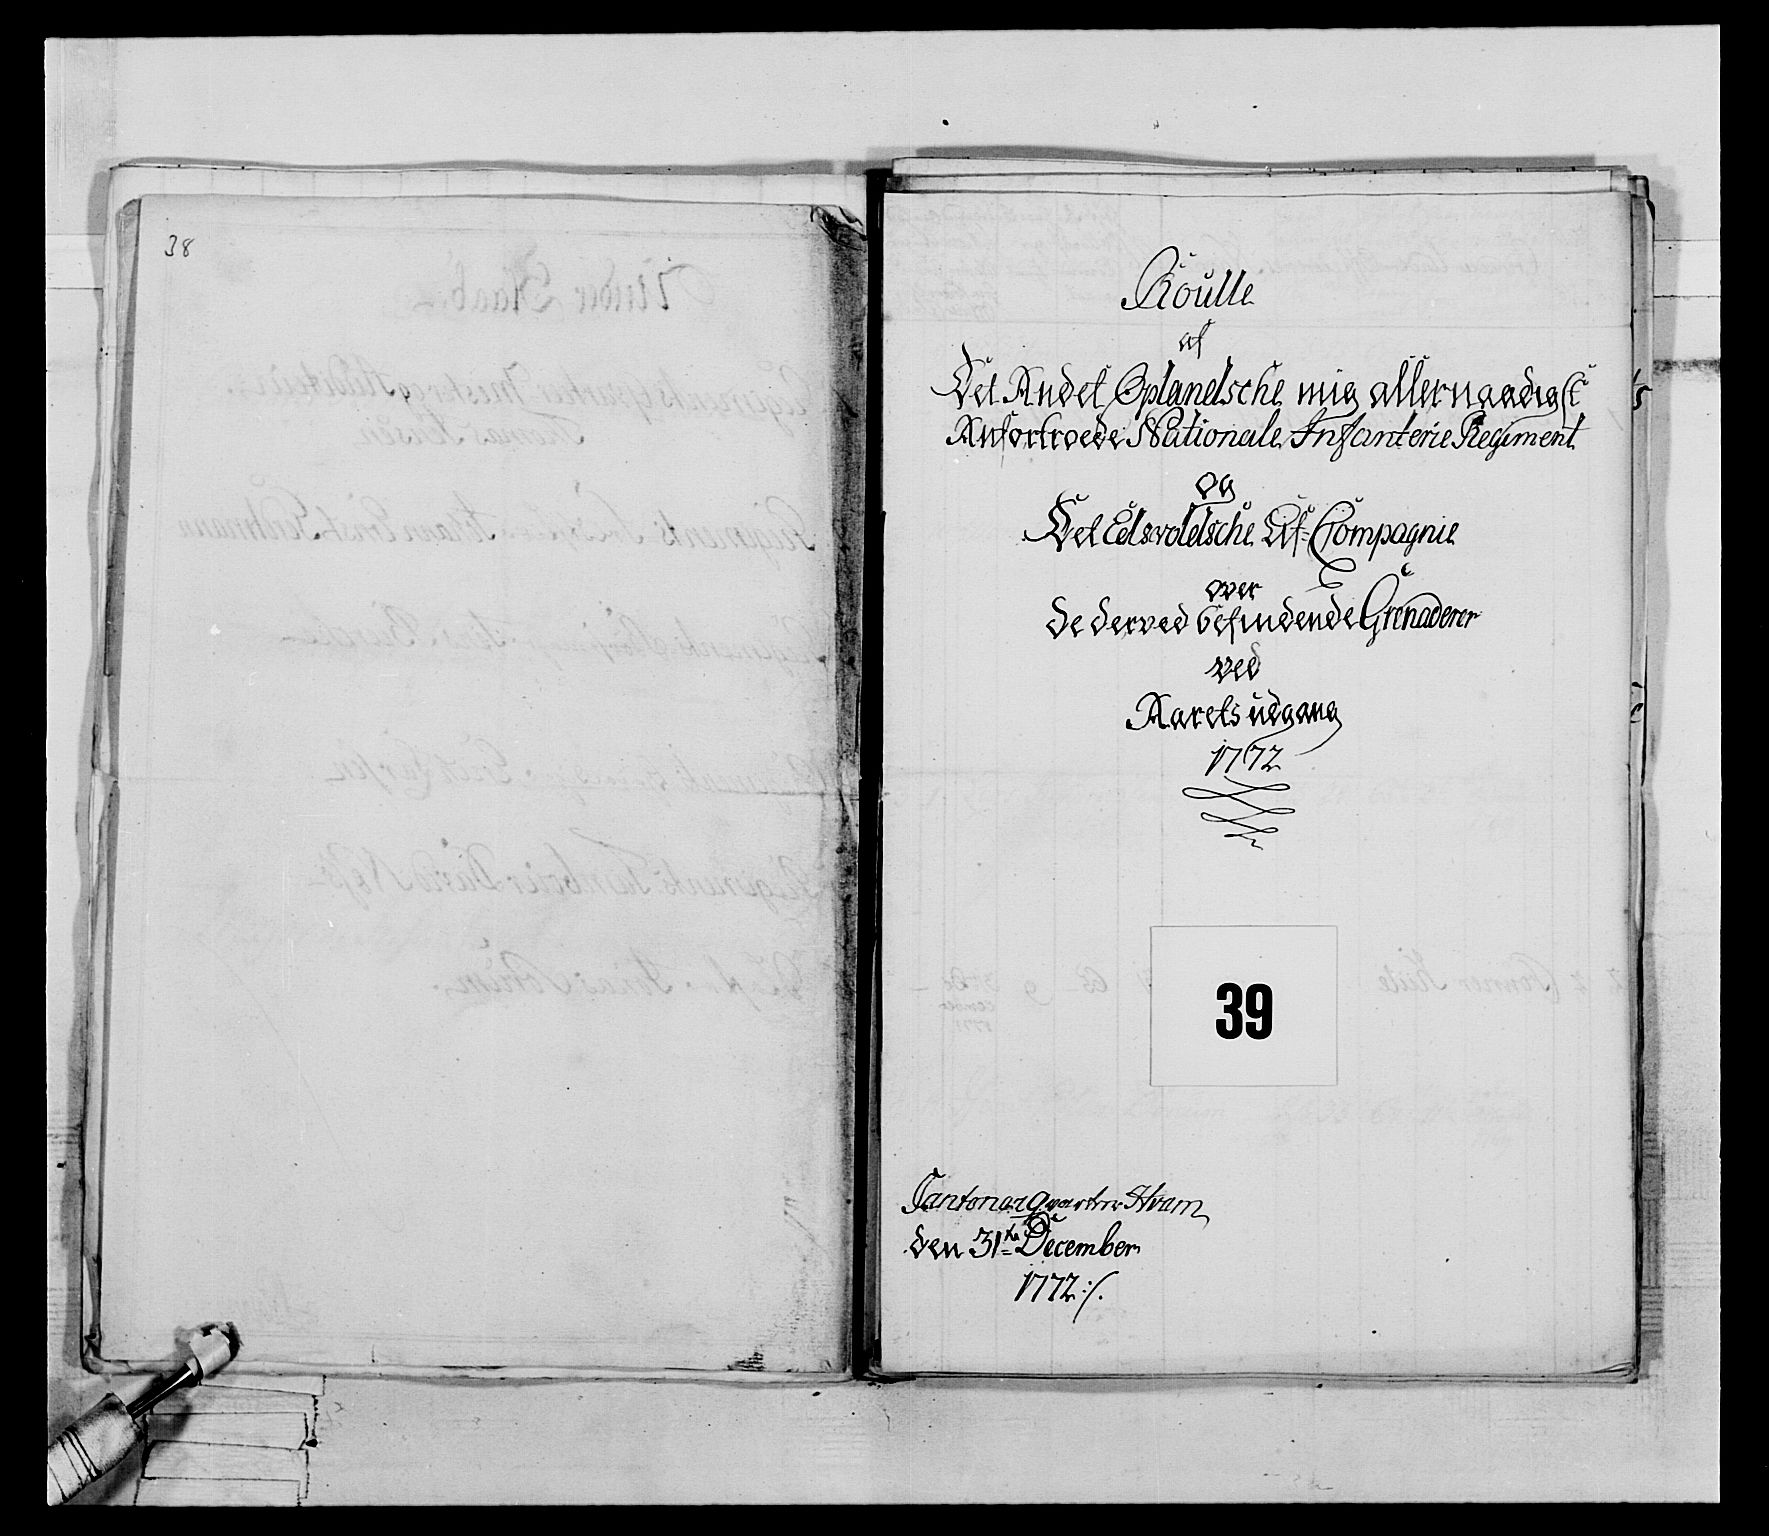 38
Roulle
af
Det Andet Oplandsche mig allernaadigst
Anfortroede Nationale Infanterie Regiment
og
Det Edsvoldsche Lif-Compagnie
over
de derved befindende Grenaderer
ved
Aarets udgang
1772
39
Cantoner qvarteer Hvam
den 31te December
1772:/.